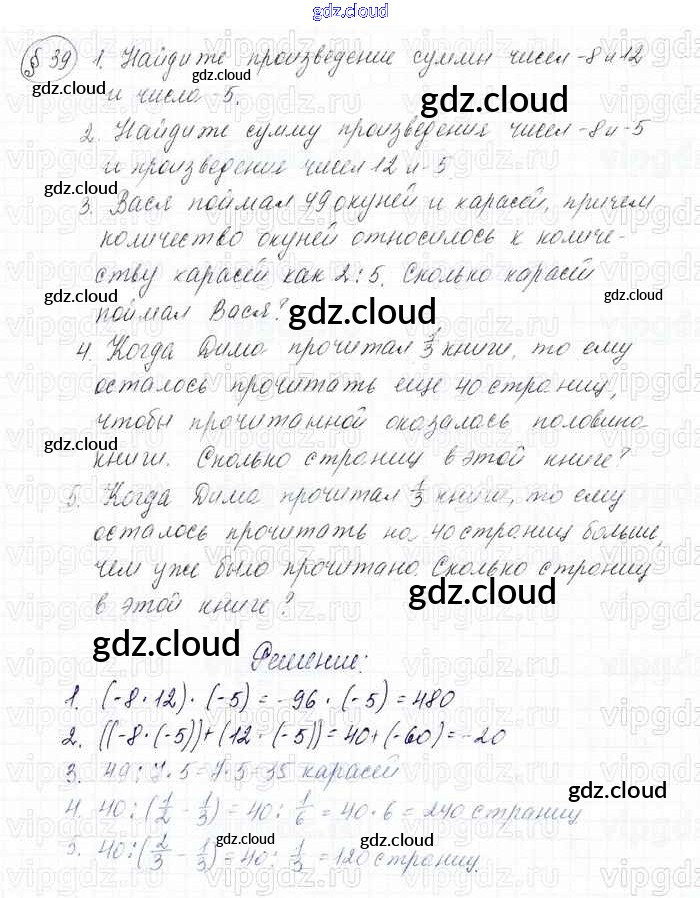 gdz.cloud
§ 39 1. Найдите произведение суммы чисел -8 и 12
и числа -5.
2. Найдите сумму произведения чисел -8 и -5
и произведения чисел 12 и -5
3. Вася поймал 49 окуней и карасей, причем
количество окуней относилось к количе-
ству карасей как 2:5. Сколько карасей
поймал Вася?
4. Когда Дима прочитал 1/3 книги, то ему
осталось прочитать еще 40 страниц,
чтобы прочитанной оказалась половина
книги. Сколько страниц в этой книге?
5. Когда Дима прочитал 1/3 книги, то ему
осталось прочитать на 40 страниц больше,
чем уже было прочитано. Сколько страниц
в этой книге?
Решение:
1. (-8 · 12) · (-5) = -96 · (-5) = 480
2. ((-8 · (-5)) + (12 · (-5)) = 40 + (-60) = -20
3. 49 : 7 · 5 = 7 · 5 = 35 карасей
4. 40 : (1/2 - 1/3) = 40 : 1/6 = 40 · 6 = 240 страниц
5. 40 : (2/3 - 1/3) = 40 : 1/3 = 120 страниц.